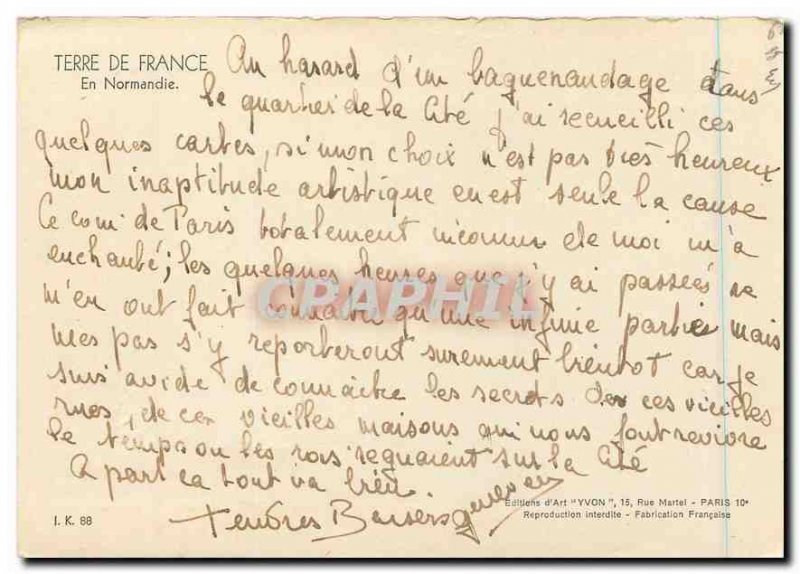 TERRE DE FRANCE
En Normandie.
Au hasard d'un baguenaudage dans
le quartier de la Cité j'ai recueilli ces
quelques cartes, si mon choix n'est pas très heureux
mon inaptitude artistique en est seule la cause
Ce coin de Paris totalement inconnu de moi m'a
enchanté; les quelques heures que j'y ai passées ne
m'en ont fait connaitre qu'une infime partie mais
mes pas s'y reporteront surement bientot car je
suis avide de connaitre les secrets de ces vieilles
rues, de ces vieilles maisons qui nous font revivre
le temps ou les rois regnaient sur la Cité
A part ca tout va bien.
Tendres Baisers
CPAPHIL
Editions d'Art "YVON", 15, Rue Martel - PARIS 10e
Reproduction interdite - Fabrication Française
I. K. 88